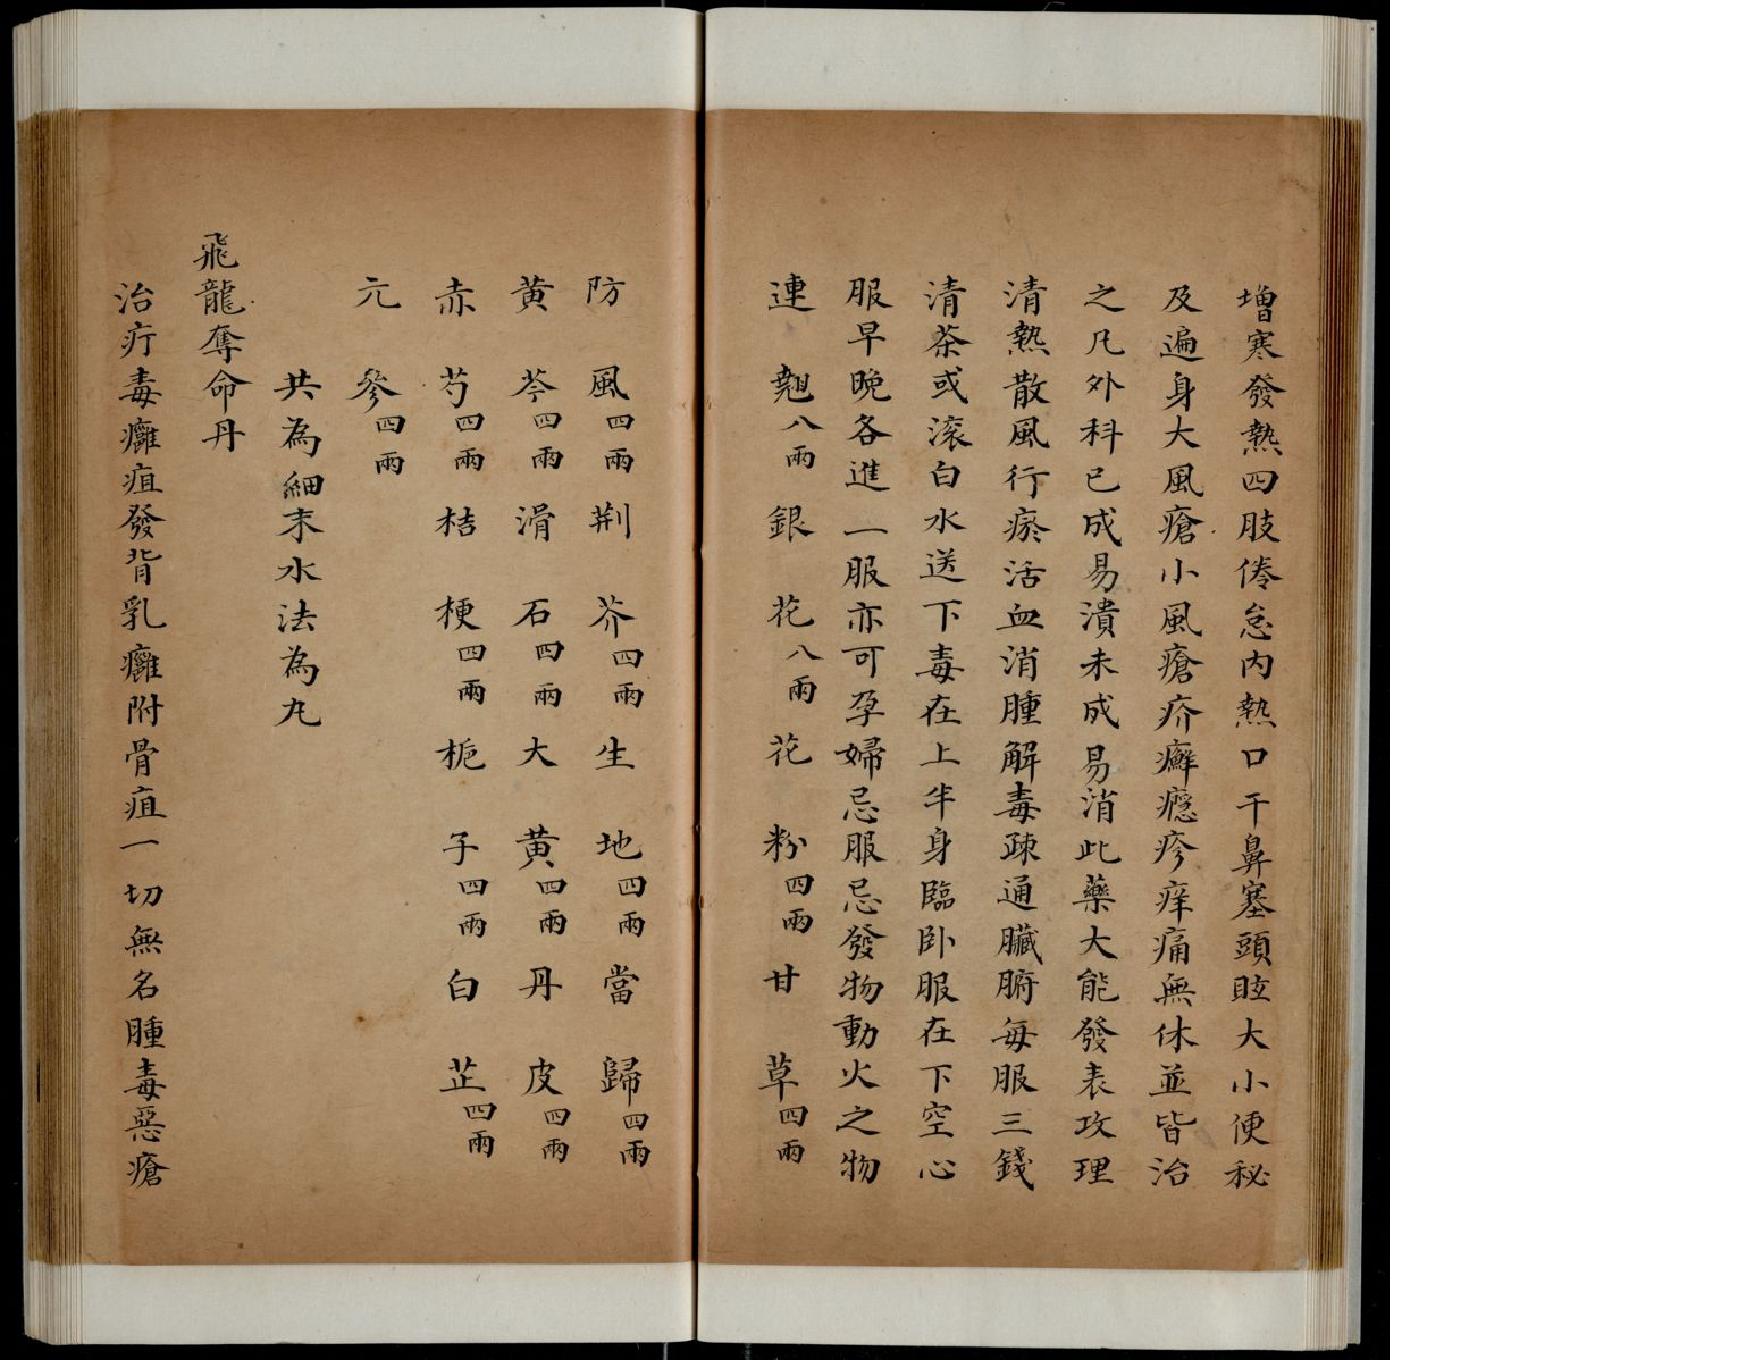 增寒發熱四肢倦怠內熱口干鼻塞頭眩大小便秘
及遍身大風瘡小風瘡疥癬癮疹痒痛無休並皆治
之凡外科已成易潰未成易消此藥大能發表攻理
清熱散風行瘀活血消腫解毒疎通臟腑每服三錢
清茶或滾白水送下毒在上半身臨卧服在下空心
服早晚各進一服亦可孕婦忌服忌發物動火之物
連翹八兩 銀花八兩 花粉四兩 甘草四兩
防風四兩 荆芥四兩 生地四兩 當歸四兩
黃芩四兩 滑石四兩 大黃四兩 丹皮四兩
赤芍四兩 桔梗四兩 梔子四兩 白芷四兩
元參四兩
共為細末水法為丸
飛龍奪命丹
治疔毒癰疽發背乳癰附骨疽一切無名腫毒惡瘡